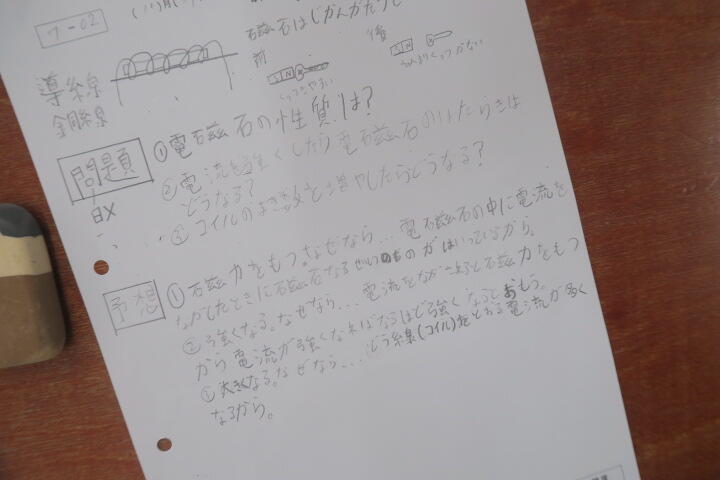 ワ-02
電磁石はじかんがたつと
導線
銅線
前
SN
くっつきやすい
後
SN
あんまりくっつかない
問題
①電磁石の性質は?
②電流を強くしたら電磁石のはたらきは
どうなる?
③コイルのまき数を増やしたらどうなる?
予想
①磁力をもつ。なぜなら…電磁石の中に電流を
ながしたときに磁石になるせいしつのものがはいっているから。
②強くなる。なぜなら…電流をながされると磁力をもつ
から電流が強くなればなるほど強くなるとおもう。
①大きくなる。なぜなら…どう線(コイル)をとおる電流が多く
なるから。